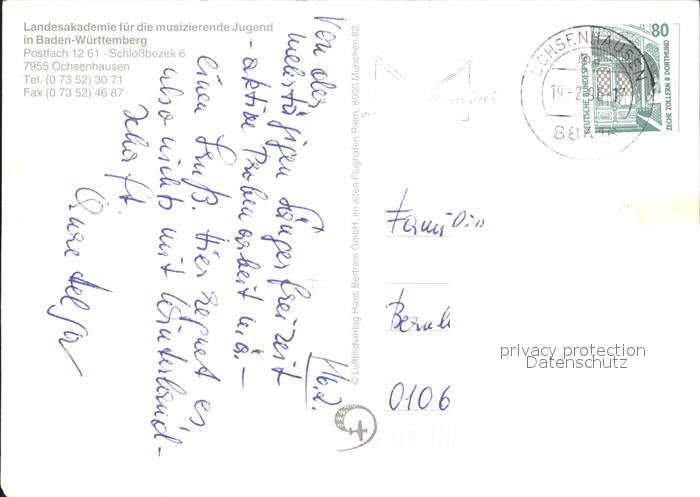 Landesakademie für die musizierende Jugend
in Baden-Württemberg
Postfach 12 61 · Schloßbezirk 6
7955 Ochsenhausen
Tel. (0 73 52) 30 71
Fax (0 73 52) 46 87
16.2.
Von der
mehrtägigen Sängerfreizeit
- aktive Probenarbeit u.a. -
einen Gruß. Hier regnet es,
also nichts mit Winterland-
schaft.
Eure Helga
© Luftbildverlag Hans Bertram GmbH, im alten Flughafen Riem, 8000 München 82
OCHSENHAUSEN
80
DEUTSCHE BUNDESPOST
ZECHE ZOLLERN II DORTMUND
Familie
Bernh
0106
privacy protection
Datenschutz